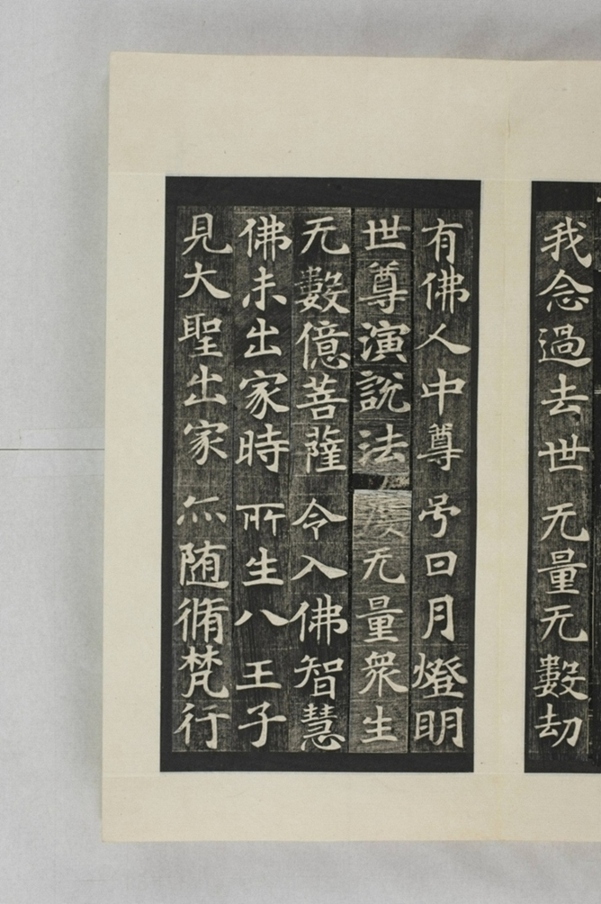 我念過去世无量无數劫
有佛人中尊号日月燈明
世尊演說法度无量衆生
无數億菩薩令入佛智慧
佛未出家時所生八王子
見大聖出家亦随脩梵行